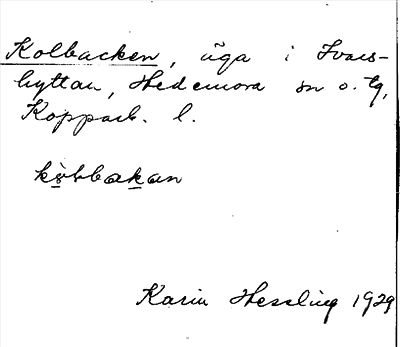 Kolbacken, äga i Ivars-
hyttan, Hedemora sn o. tg,
Kopparb. l.
kɷ̀lbakan
Karin Hessling 1929